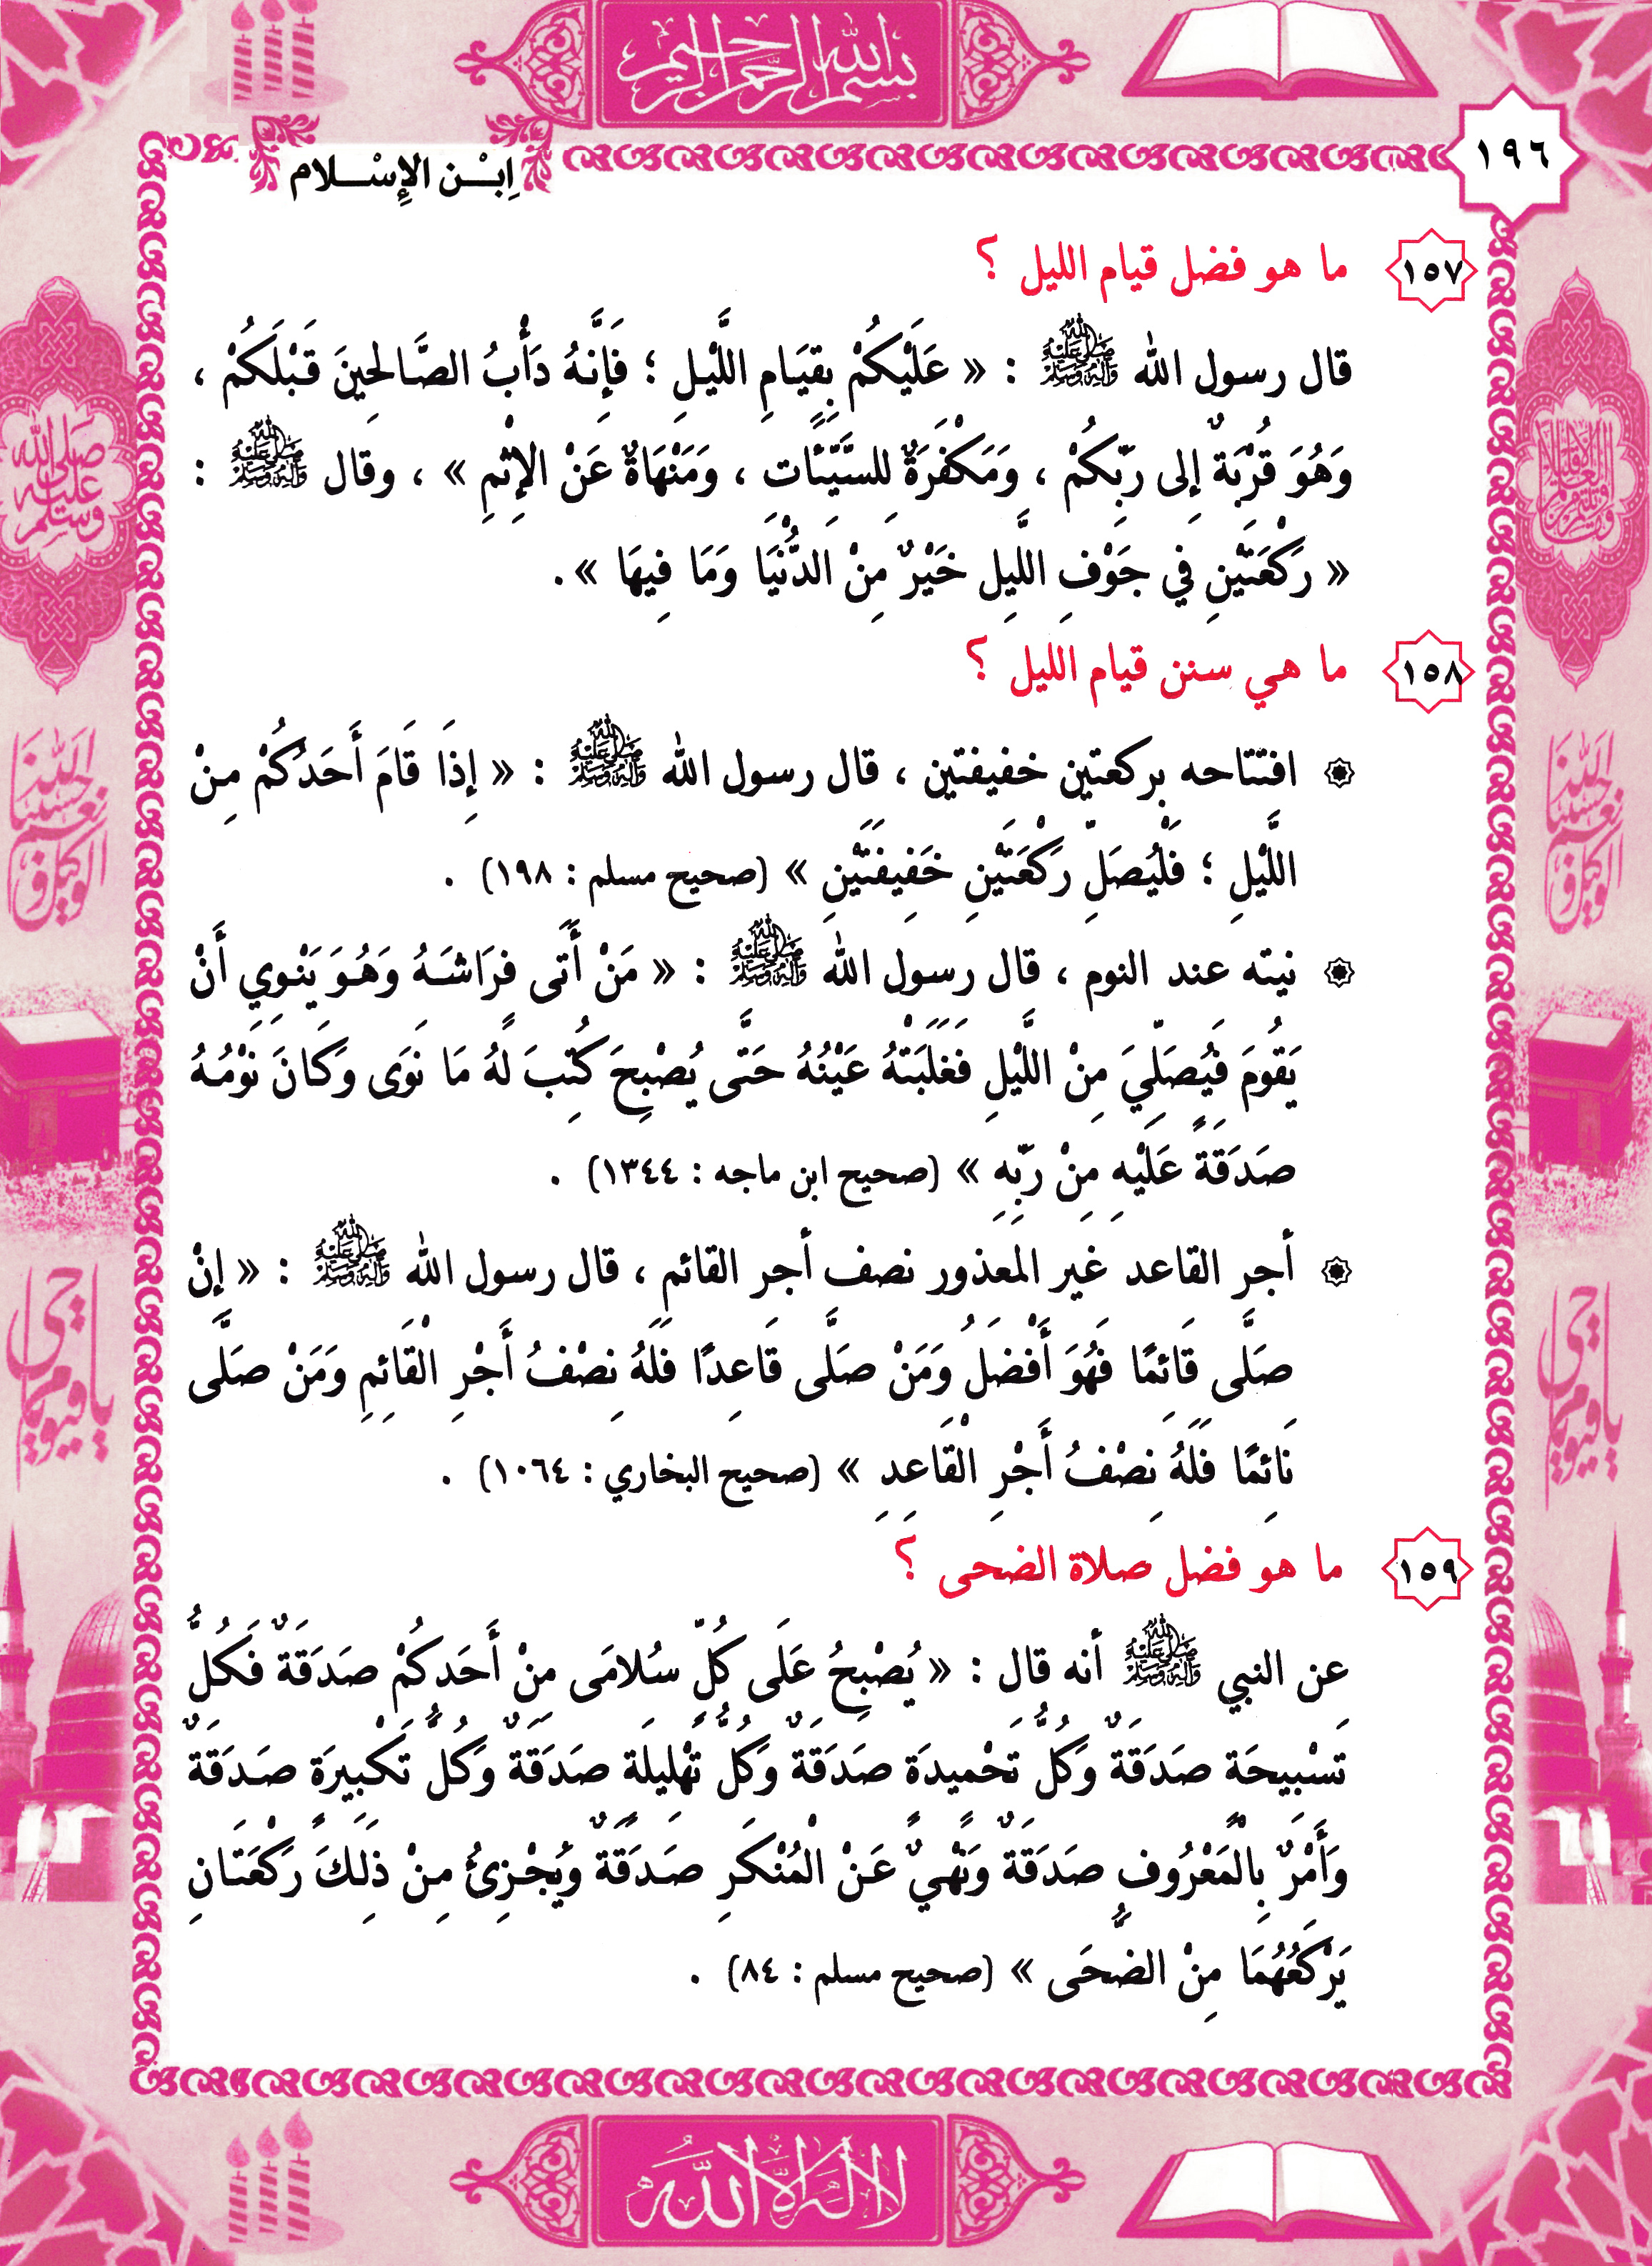 بسم الله الرحمن الرحيم
١٩٦
اِبْـن الإِسْـلام
١٥٧ ما هو فضل قيام الليل ؟
قال رسول الله ﷺ : « عَلَيْكُمْ بِقِيَامِ اللَّيْلِ ؛ فَإِنَّهُ دَأْبُ الصَّالِحِينَ قَبْلَكُمْ ،
وَهُوَ قُرْبَةٌ إِلى رَبِّكُمْ ، وَمَكْفَرَةٌ لِلسَّيِّئَاتِ ، وَمَنْهَاةٌ عَنْ الإِثْمِ » ، وقال ﷺ :
« رَكْعَتَيْنِ فِي جَوْفِ اللَّيِل خَيْرٌ مِنْ الدُّنْيَا وَمَا فِيهَا ».
١٥٨ ما هي سنن قيام الليل ؟
افتتاحه بركعتين خفيفتين ، قال رسول الله ﷺ : « إِذَا قَامَ أَحَدُكُمْ مِنْ
اللَّيْلِ ؛ فَلْيُصَلِّ رَكْعَتَيْنِ خَفِيفَتَيْنِ » (صحيح مسلم : ١٩٨) .
نيته عند النوم ، قال رسول الله ﷺ : « مَنْ أَتَى فِرَاشَـهُ وَهُوَ يَنْوِي أَنْ
يَقُومَ فَيُصَلِّيَ مِنْ اللَّيْلِ فَغَلَبَتْهُ عَيْنُهُ حَتَّى يُصْبِحَ كُتِبَ لَهُ مَا نَوَى وَكَانَ نَوْمُهُ
صَدَقَةً عَلَيْهِ مِنْ رَبِّهِ » (صحيح ابن ماجه : ١٣٤٤) .
أجر القاعد غير المعذور نصف أجر القائم ، قال رسول الله ﷺ : « إِنْ
صَلَّى قَائِمًا فَهُوَ أَفْضَلُ وَمَنْ صَلَّى قَاعِدًا فَلَهُ نِصْفُ أَجْرِ الْقَائِمِ وَمَنْ صَلَّى
نَائِمًا فَلَهُ نِصْفُ أَجْرِ الْقَاعِدِ » (صحيح البخاري : ١٠٦٤) .
١٥٩ ما هو فضل صلاة الضحى ؟
عَنِ النبي ﷺ أنه قال : « يُصْبِحُ عَلَى كُلِّ سُلَامَى مِنْ أَحَدِكُمْ صَدَقَةٌ فَكُلُّ
تَسْبِيحَةٍ صَدَقَةٌ وَكُلُّ تَحْمِيدَةٍ صَدَقَةٌ وَكُلُّ تَهْلِيلَةٍ صَدَقَةٌ وَكُلُّ تَكْبِيرَةٍ صَدَقَةٌ
وَأَمْرٌ بِالْمَعْرُوفِ صَدَقَةٌ وَنَهْيٌ عَنْ الْمُنْكَرِ صَدَقَةٌ وَيُجْزِئُ مِنْ ذَلِكَ رَكْعَتَانِ
يَرْكَعُهُمَا مِنْ الضُّحَى » (صحيح مسلم : ٨٤) .
لا إله إلا الله
صلى الله عليه وسلم
الله حسبنا نعم الوكيل
الله حسبنا نعم الوكيل
يا حي يا قيوم
يا حي يا قيوم